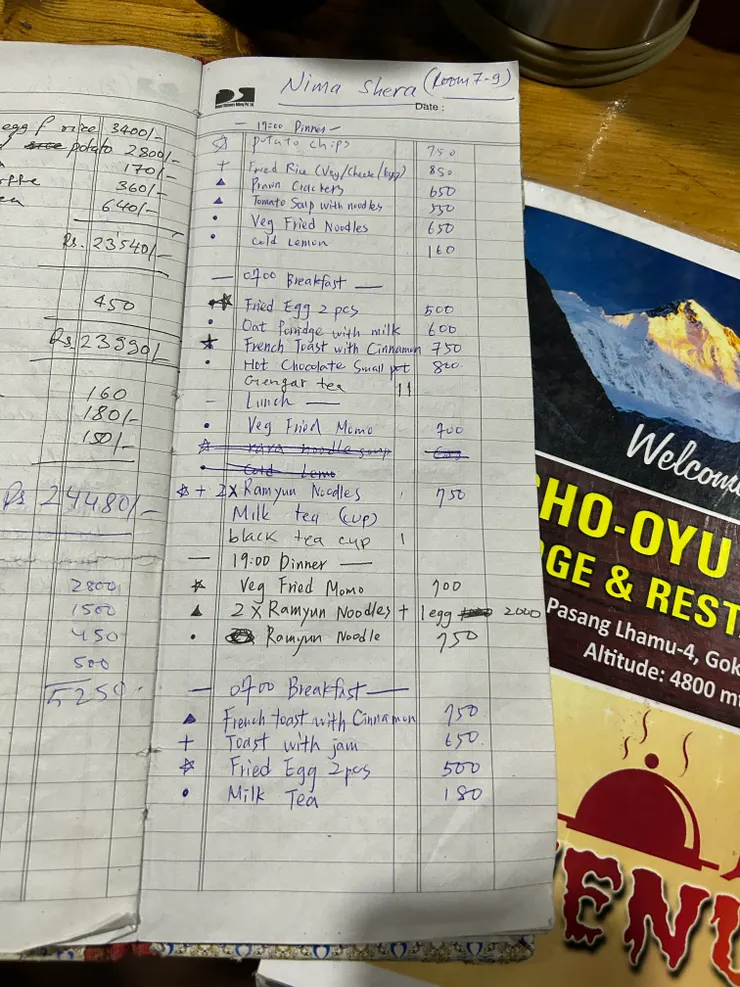 egg f rice 3400/-
potato 2800/-
170/-
360/-
640/-
Rs. 23540/-
450
Rs. 23990/-
160
180/-
150/-
Rs 24480/-
2800
1500
450
500
5250
Nima Shera (Room 7-9)
Date :
— 19:00 Dinner —
☆ potato chips 750
+ Fried Rice (Veg/Cheese/Egg) 850
▲ Prawn Crackers 650
▲ Tomato Soup with noodles 550
• Veg Fried Noodles 650
• Cold Lemon 160
— 0700 Breakfast —
☆ Fried Egg 2 pcs 500
• Oat Porridge with milk 600
★ French Toast with Cinnamon 750
• Hot Chocolate Small pot 800
Gengar tea 11
— Lunch —
• Veg Fried Momo 700
☆ rara noodle soup
• Cold Lemo
☆ + 2X Ramyun Noodles 750
Milk tea (cup)
black tea cup 1
— 19:00 Dinner —
☆ Veg Fried Momo 700
▲ 2 X Ramyun Noodles + 1egg 2000
• Ramyun Noodle 750
— 0700 Breakfast —
▲ French toast with Cinnamon 750
+ Toast with jam 650
☆ Fried Egg 2pcs 500
• Milk Tea 180
Welcom
HO-OYU
GE & REST
Pasang Lhamu-4, Gok
Altitude: 4800 m
ENU